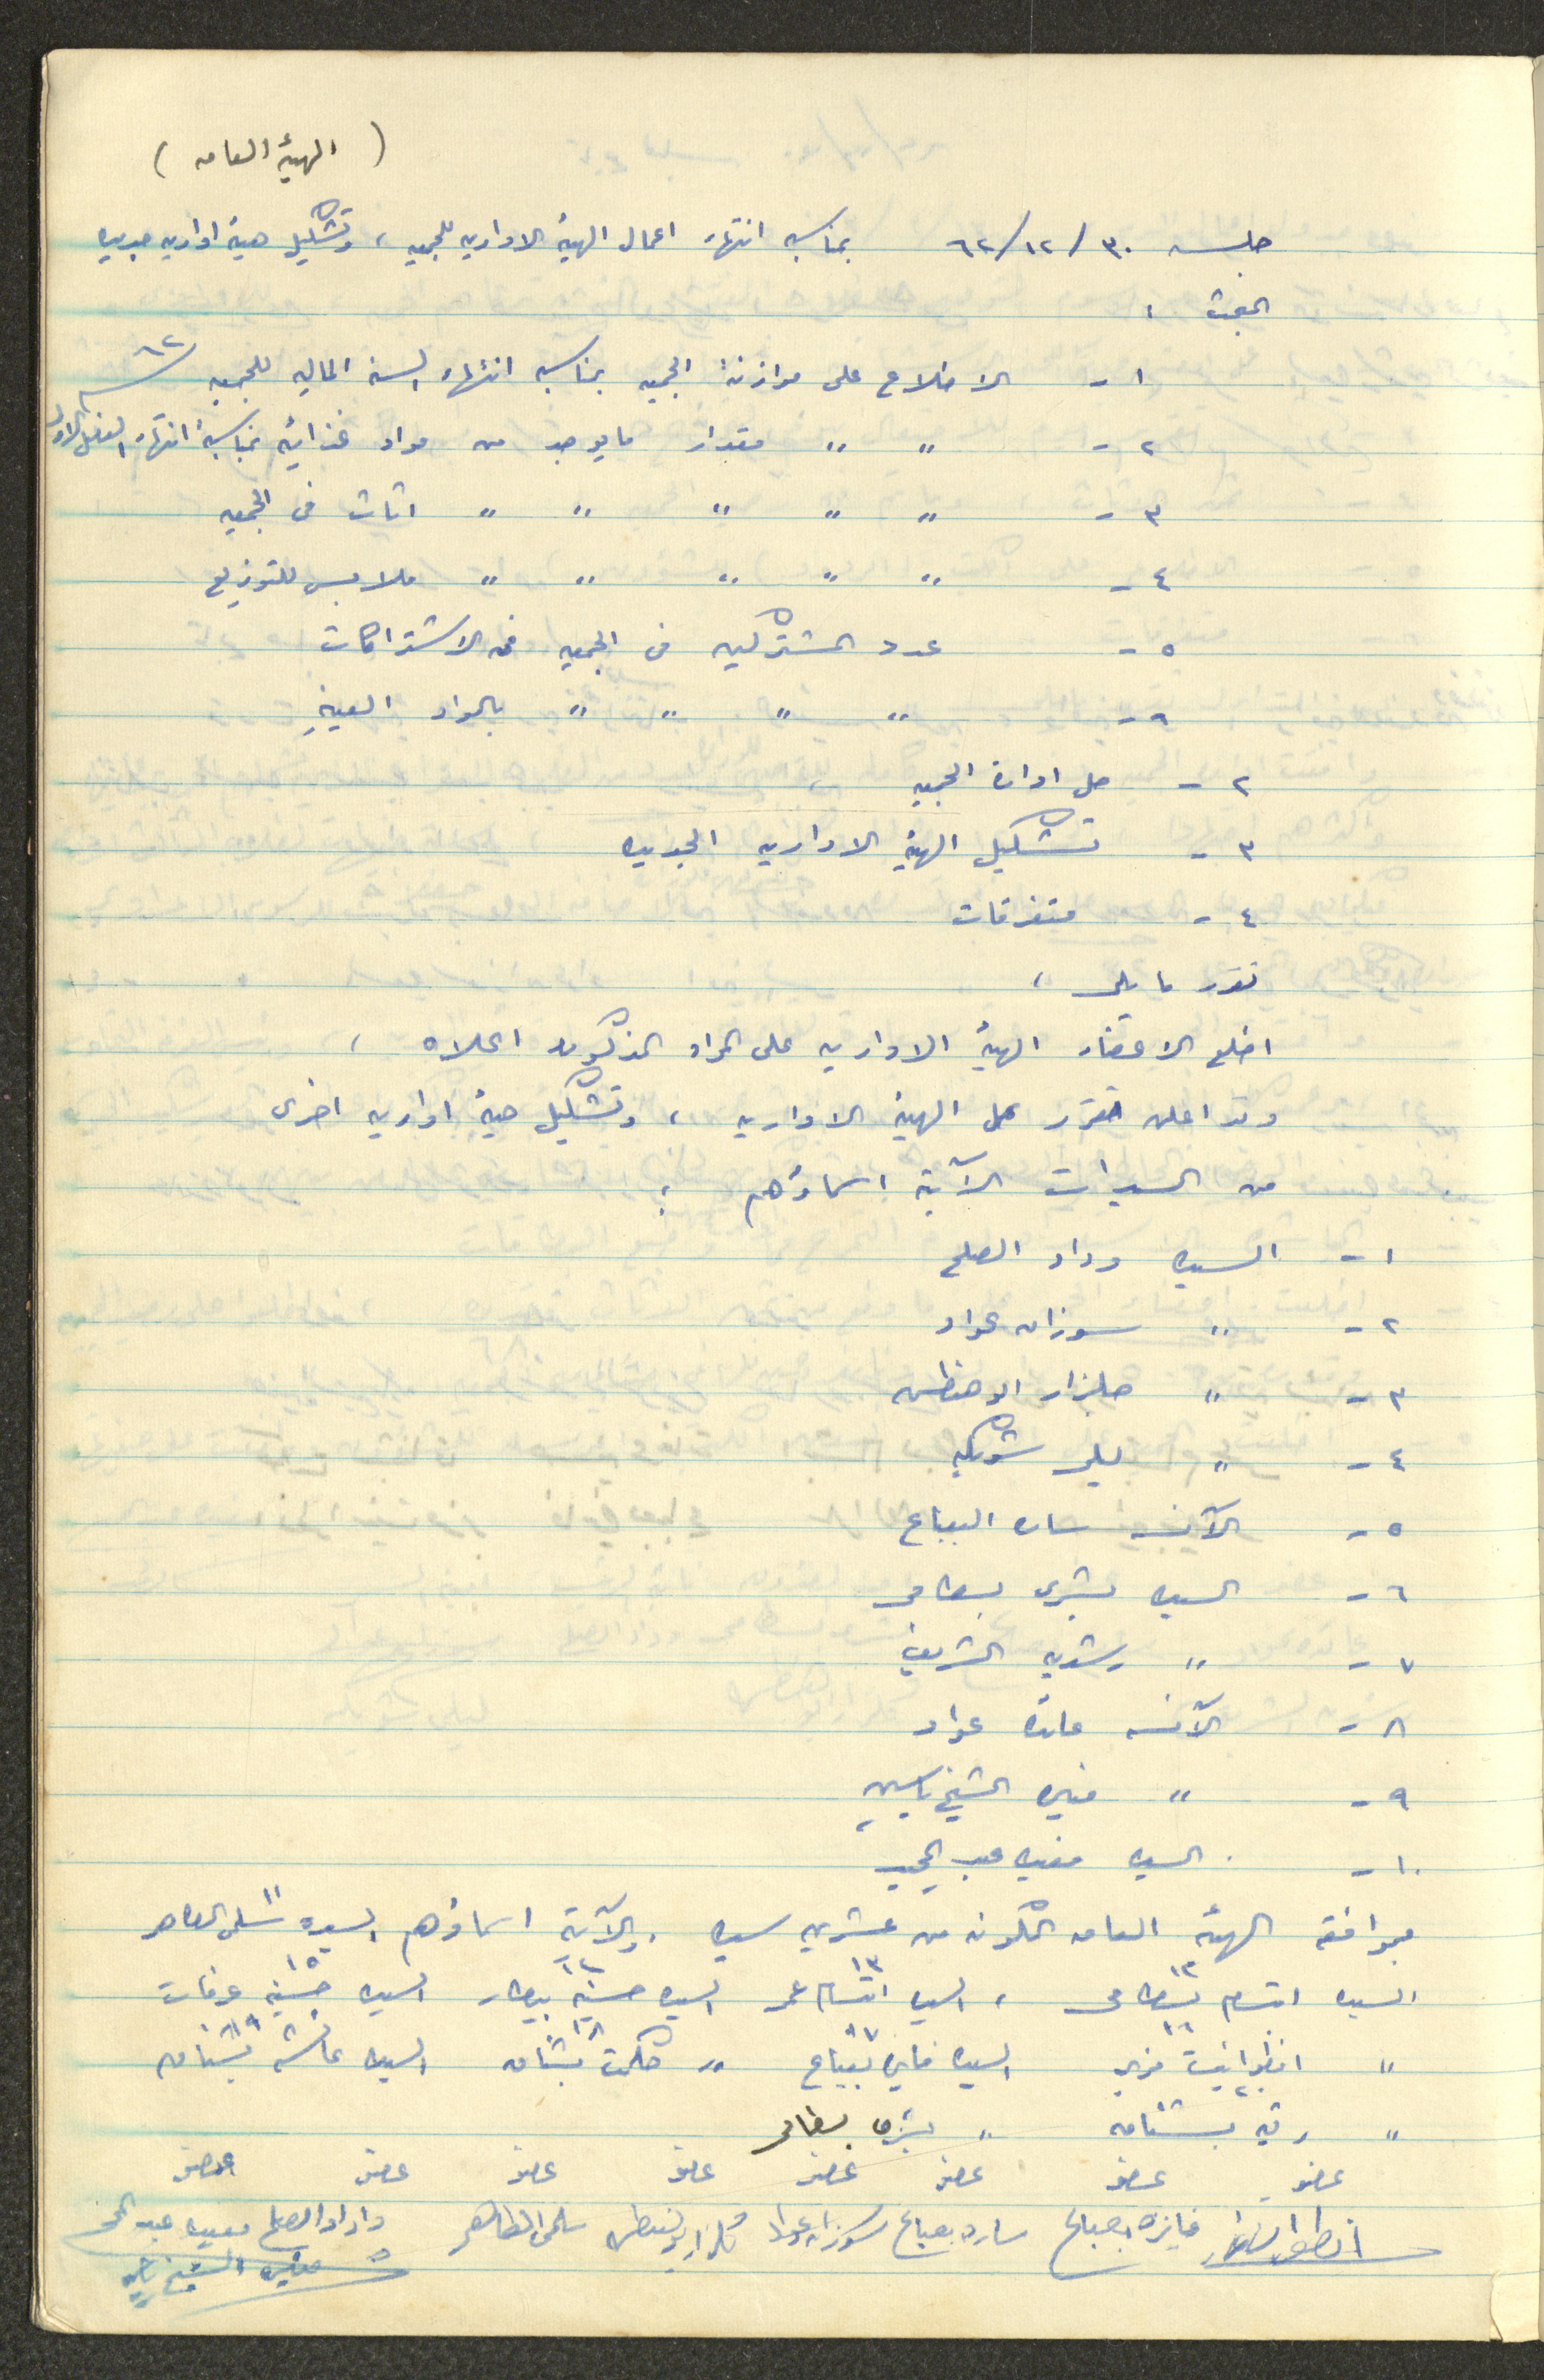 ( الهيئة العامه )
جلسه ٣٠/١٢/٦٢ بمناسبة انتهاء اعمال الهيئة الاداريه للجمعيه ، وتشكيل هيئة اداريه جديده
البحث ،
١ - الاطلاع على موازنة الجمعيه بمناسبة انتهاء السنه الماليه للجمعيه ٦٢
٢ - " " مقدار ما يوجد من مواد غذائيه بمناسبة انتهاء الفصل الاول
٣ - " " " " " اثاث في الجمعيه
٤ - " " " " " ملابس للتوزيع
٥ - عدد المشتركين في الجمعيه في الاشتراكات
٦ - " " " " بالمواد العينيه
٢ - حل ادارة الجمعيه
٣ - تشكيل الهيئة الاداريه الجديده
٤ - متفرقات
تقرر ما يلي ،
اطلع الاعضاء الهيئة الاداريه على المواد المذكوره اعلاه ،
وقد اعلن تقرر حل الهيئة الاداريه ، وتشكيل هيئة اداريه اخرى
من السيدات الآتية اسماؤهم ؛
١ - السيده وداد الصلح
٢ - " سوزان عواد
٣ - " جلزار
٤ - " ليلى شويكه
٥ - الآنسه ساره البعباع
٦ - السيده بشرى بسطامي
٧ - " رشديه الشريف
٨ - الآنسه عائدة عواد
٩ - " منيره الشيخ ياسين
١٠ - السيده مفيده عبد المجيد
بموافقة الهيئه العامه المكونه من عشرين سيده والآتية اسماؤهم السيده ١١ سلمى الطاهر
السيده ابتسام ١٢ بسطامي ، السيده ١٣ ابتسام عمر السيده ١٤ حسنيه بيطار السيده ١٥ حسنيه عرفات
" ١٦ انطوانيت السيده ١٧ فايزه بعباع " ١٨ حكمت بشناق السيده ١٩ عائشه بشناق
" ٢٠ رقيه بشناق " بشرى بسطامي
عضو عضو عضو عضو عضو عضو عضو عضو
فايزه بعباع ساره بعباع سوزان عواد سلمى الطاهر وداد الصلح مفيده عبد المجيد
منيره الشيخ ياسين